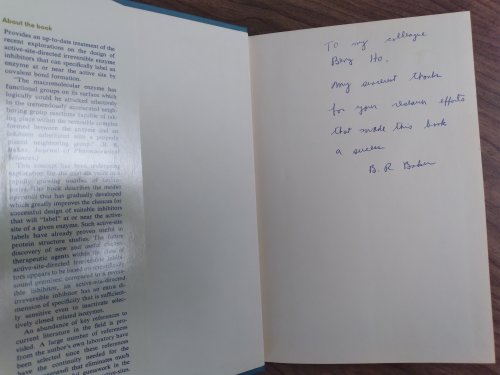 About the book
Provides an up-to-date treatment of the
recent explorations on the design of
active-site-directed irreversible enzyme
inhibitors that can specifically label an
enzyme at or near the active site by
covalent bond formation.
"The macromolecular enzyme has
functional groups on its surface which
logically could be attacked selectively
in the tremendously accelerated neigh-
boring group reactions capable of tak-
ing place within the reversible complex
formed between the enzyme and an
inhibitor substituted with a properly
placed neighboring group." (B. R.
Baker, Journal of Pharmaceutical
Sciences.)
This concept has been undergoing
exploration for the
rapidly growing number of
The book describes the modus
operandi that has gradually developed
which greatly improves the chances for
successful design of suitable inhibitors
that will "label" at or near the active-
site of a given enzyme. Such active-site
labels have already proven useful in
protein structure studies. The future
discovery of new and useful
therapeutic agents within the
active-site-directed irreversible inhibi-
tors appears to be based on scientifically
sound premises: compared to a revers-
ible inhibitor, an active-site-directed
irreversible inhibitor has an extra di-
mension of specificity that is sufficien-
tly sensitive even to inactivate selec-
tively closed related isozymes.
An abundance of key references to
current literature in the field is pro-
vided. A large number of references
from the author's own laboratory have
been selected since these references
have the continuity needed for the
that eliminates much
guesswork in the
To my colleague
Beng Ho,
My sincerest thanks
for your research efforts
that made this book
a success
B. R. Baker